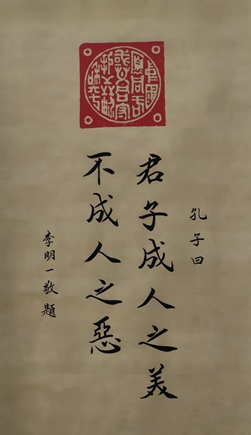 孔子曰
君子成人之美
不成人之惡
李明一敬題